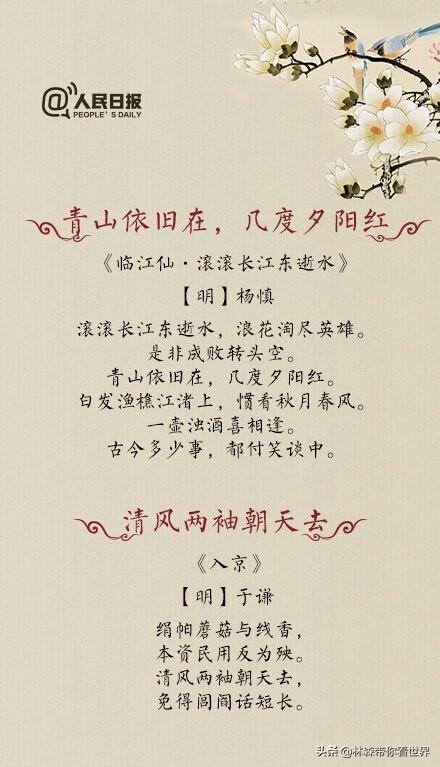 @人民日报
PEOPLE'S DAILY
青山依旧在，几度夕阳红
《临江仙·滚滚长江东逝水》
【明】杨慎
滚滚长江东逝水，浪花淘尽英雄。
是非成败转头空。
青山依旧在，几度夕阳红。
白发渔樵江渚上，惯看秋月春风。
一壶浊酒喜相逢。
古今多少事，都付笑谈中。
清风两袖朝天去
《入京》
【明】于谦
绢帕蘑菇与线香，
本资民用反为殃。
清风两袖朝天去，
免得闾阎话短长。
头条 @林森带你看世界